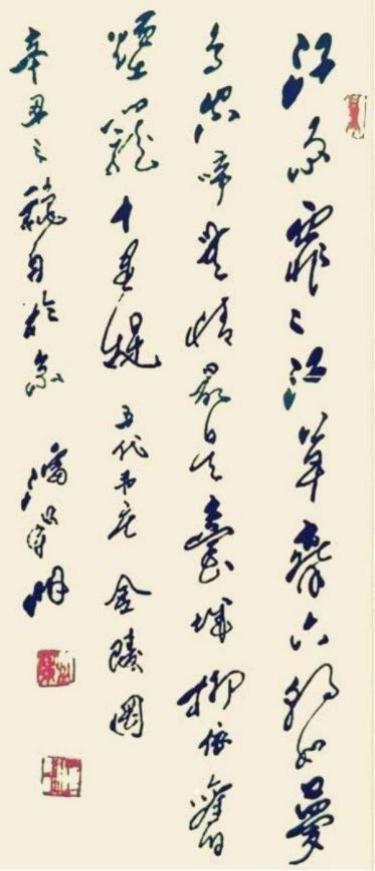 江雨霏〻江草齊六朝如夢
鳥空啼無情最是臺城柳依舊
煙籠十里堤 五代韋庄 金陵圖
辛丑之龝月於京